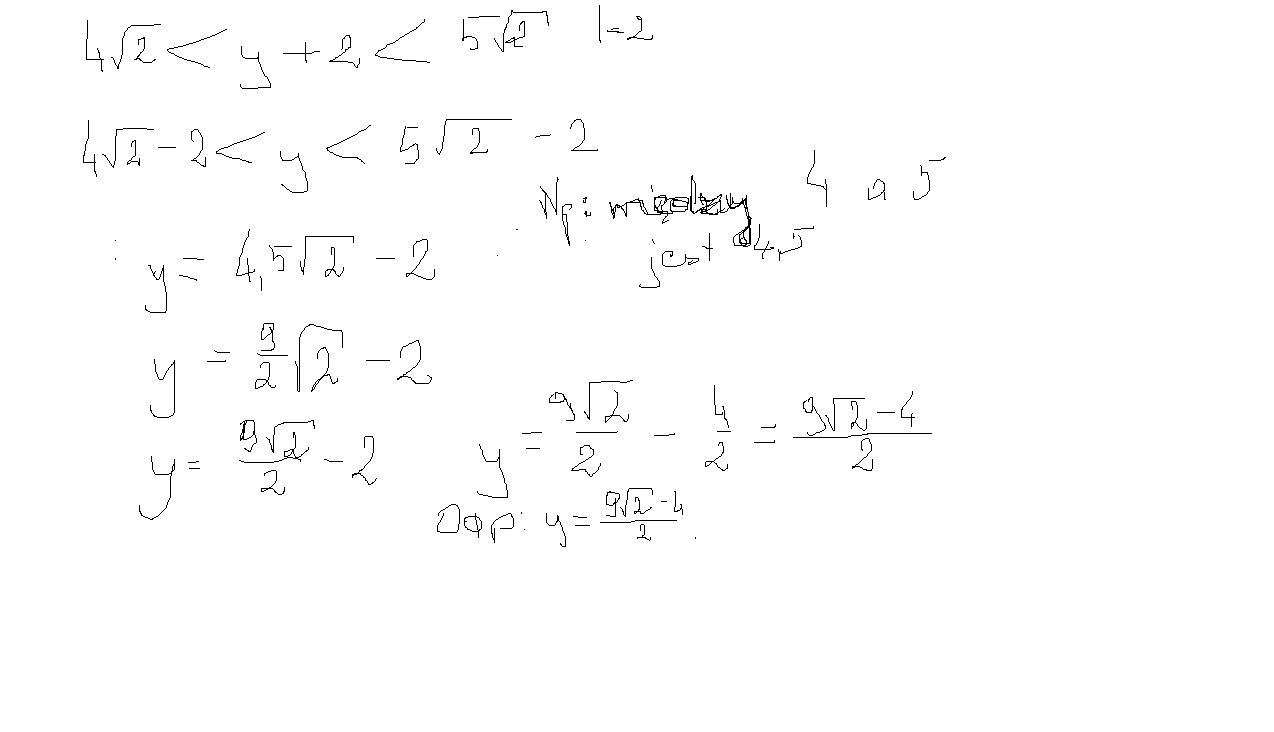 4√2 < y + 2 < 5√2 |-2
4√2 - 2 < y < 5√2 - 2
Np: między 4 a 5
jest 4,5
y = 4,5√2 - 2
y = 9/2 √2 - 2
y = 9√2/2 - 2
y = 9√2/2 - 4/2 = (9√2 - 4)/2
Odp: y = (9√2 - 4)/2.